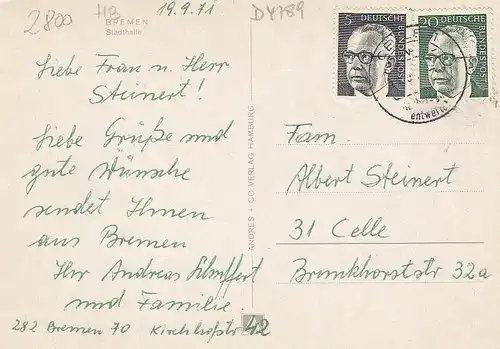 2800
HB
19.9.71
D4789
BREMEN
Stadthalle
Liebe Frau u. Herr
Steinert!
Liebe Grüße und
gute Wünsche
sendet Ihnen
aus Bremen
Ihr Andreas
und Familie
282 Bremen 70 Kirchhofstr 42
ANDRES + CO VERLAG HAMBURG
5 DEUTSCHE BUNDESPOST
20 DEUTSCHE BUNDESPOST
entwerte
Fam.
Albert Steinert
31 Celle
Brunkhorststr 32a